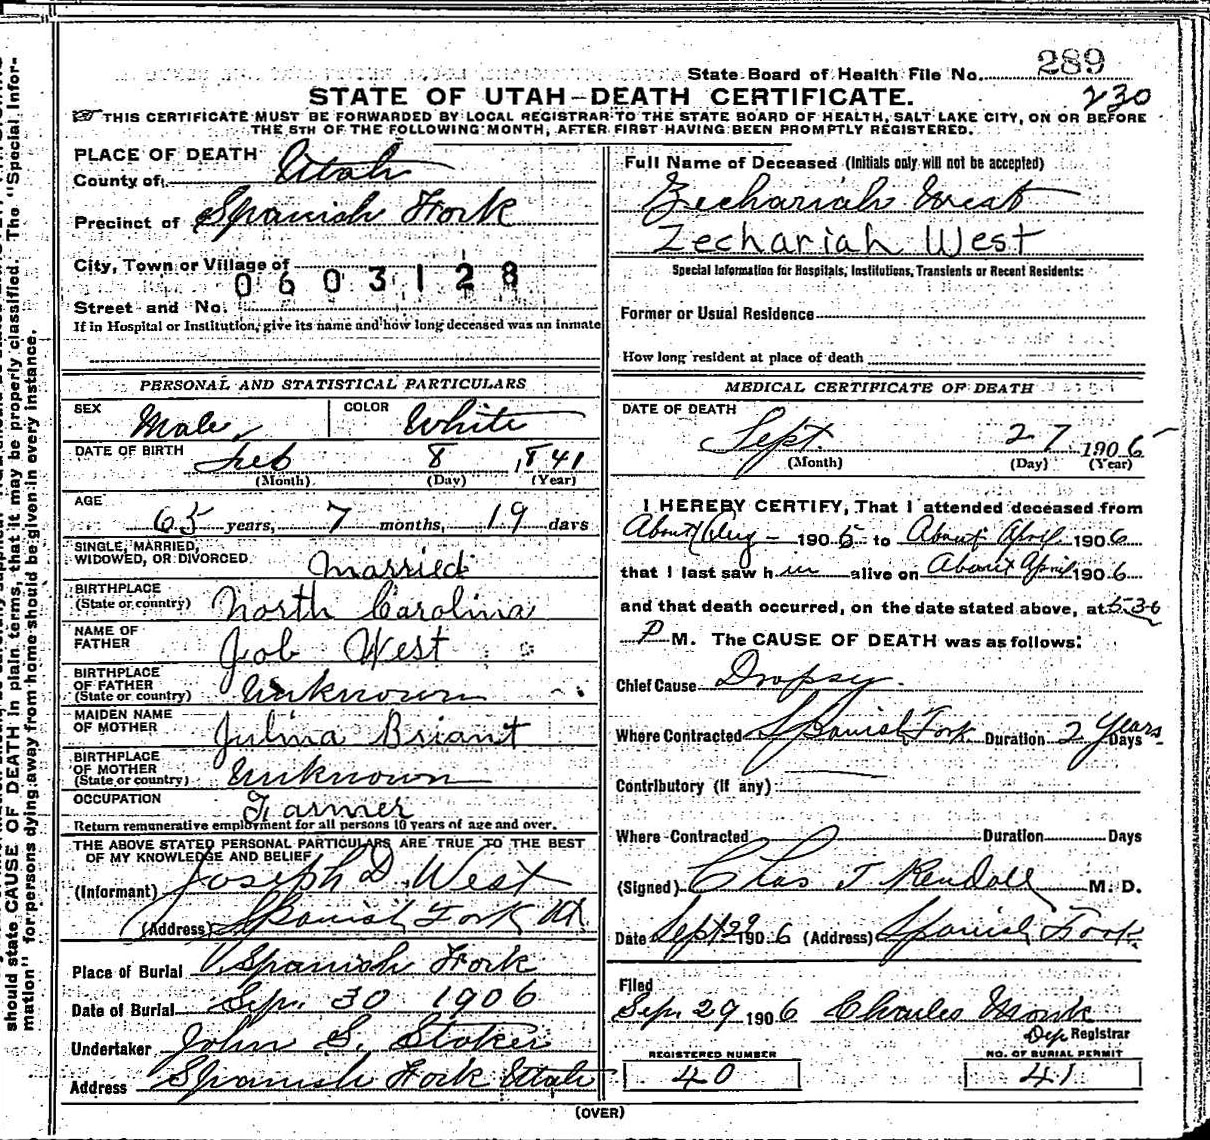 should state CAUSE OF DEATH in plain terms, that it may be properly classified. The "Special Infor-
mation" for persons dying away from home should be given in every instance.
State Board of Health File No. 289
230
STATE OF UTAH—DEATH CERTIFICATE.
☞ THIS CERTIFICATE MUST BE FORWARDED BY LOCAL REGISTRAR TO THE STATE BOARD OF HEALTH, SALT LAKE CITY, ON OR BEFORE
THE 5TH OF THE FOLLOWING MONTH, AFTER FIRST HAVING BEEN PROMPTLY REGISTERED.
PLACE OF DEATH
County of Utah
Precinct of Spanish Fork
City, Town or Village of
0603128
Street and No.
If in Hospital or Institution, give its name and how long deceased was an inmate
PERSONAL AND STATISTICAL PARTICULARS
SEX Male COLOR White
DATE OF BIRTH Feb 8 1841
(Month) (Day) (Year)
AGE
65 years, 7 months, 19 days
SINGLE, MARRIED,
WIDOWED, OR DIVORCED Married
BIRTHPLACE
(State or country) North Carolina
NAME OF
FATHER Job West
BIRTHPLACE
OF FATHER
(State or country) Unknown
MAIDEN NAME
OF MOTHER Julina Briant
BIRTHPLACE
OF MOTHER
(State or country) Unknown
OCCUPATION Farmer
Return remunerative employment for all persons 10 years of age and over.
THE ABOVE STATED PERSONAL PARTICULARS ARE TRUE TO THE BEST
OF MY KNOWLEDGE AND BELIEF
(Informant) Joseph D. West
(Address) Spanish Fork Ut.
Place of Burial Spanish Fork
Date of Burial Sep. 30 1906
Undertaker John S. Stoker
Address Spanish Fork Utah
Full Name of Deceased (Initials only will not be accepted)
Zechariah West
Zechariah West
Special Information for Hospitals, Institutions, Transients or Recent Residents:
Former or Usual Residence
How long resident at place of death
MEDICAL CERTIFICATE OF DEATH
DATE OF DEATH
Sept. 27 1906
(Month) (Day) (Year)
I HEREBY CERTIFY, That I attended deceased from
About Aug - 1905 to About April 1906
that I last saw him alive on About April 1906
and that death occurred, on the date stated above, at 5:30
P M. The CAUSE OF DEATH was as follows:
Chief Cause Dropsy.
Where Contracted Spanish Fork Duration 2 Years Days
Contributory (if any)
Where Contracted Duration Days
(Signed) Chas J Kendall M. D.
Date Sept 29 1906 (Address) Spanish Fork
Filed
Sep. 29 1906 Charles Monk
Dep Registrar
REGISTERED NUMBER
40
NO. OF BURIAL PERMIT
41
(OVER)